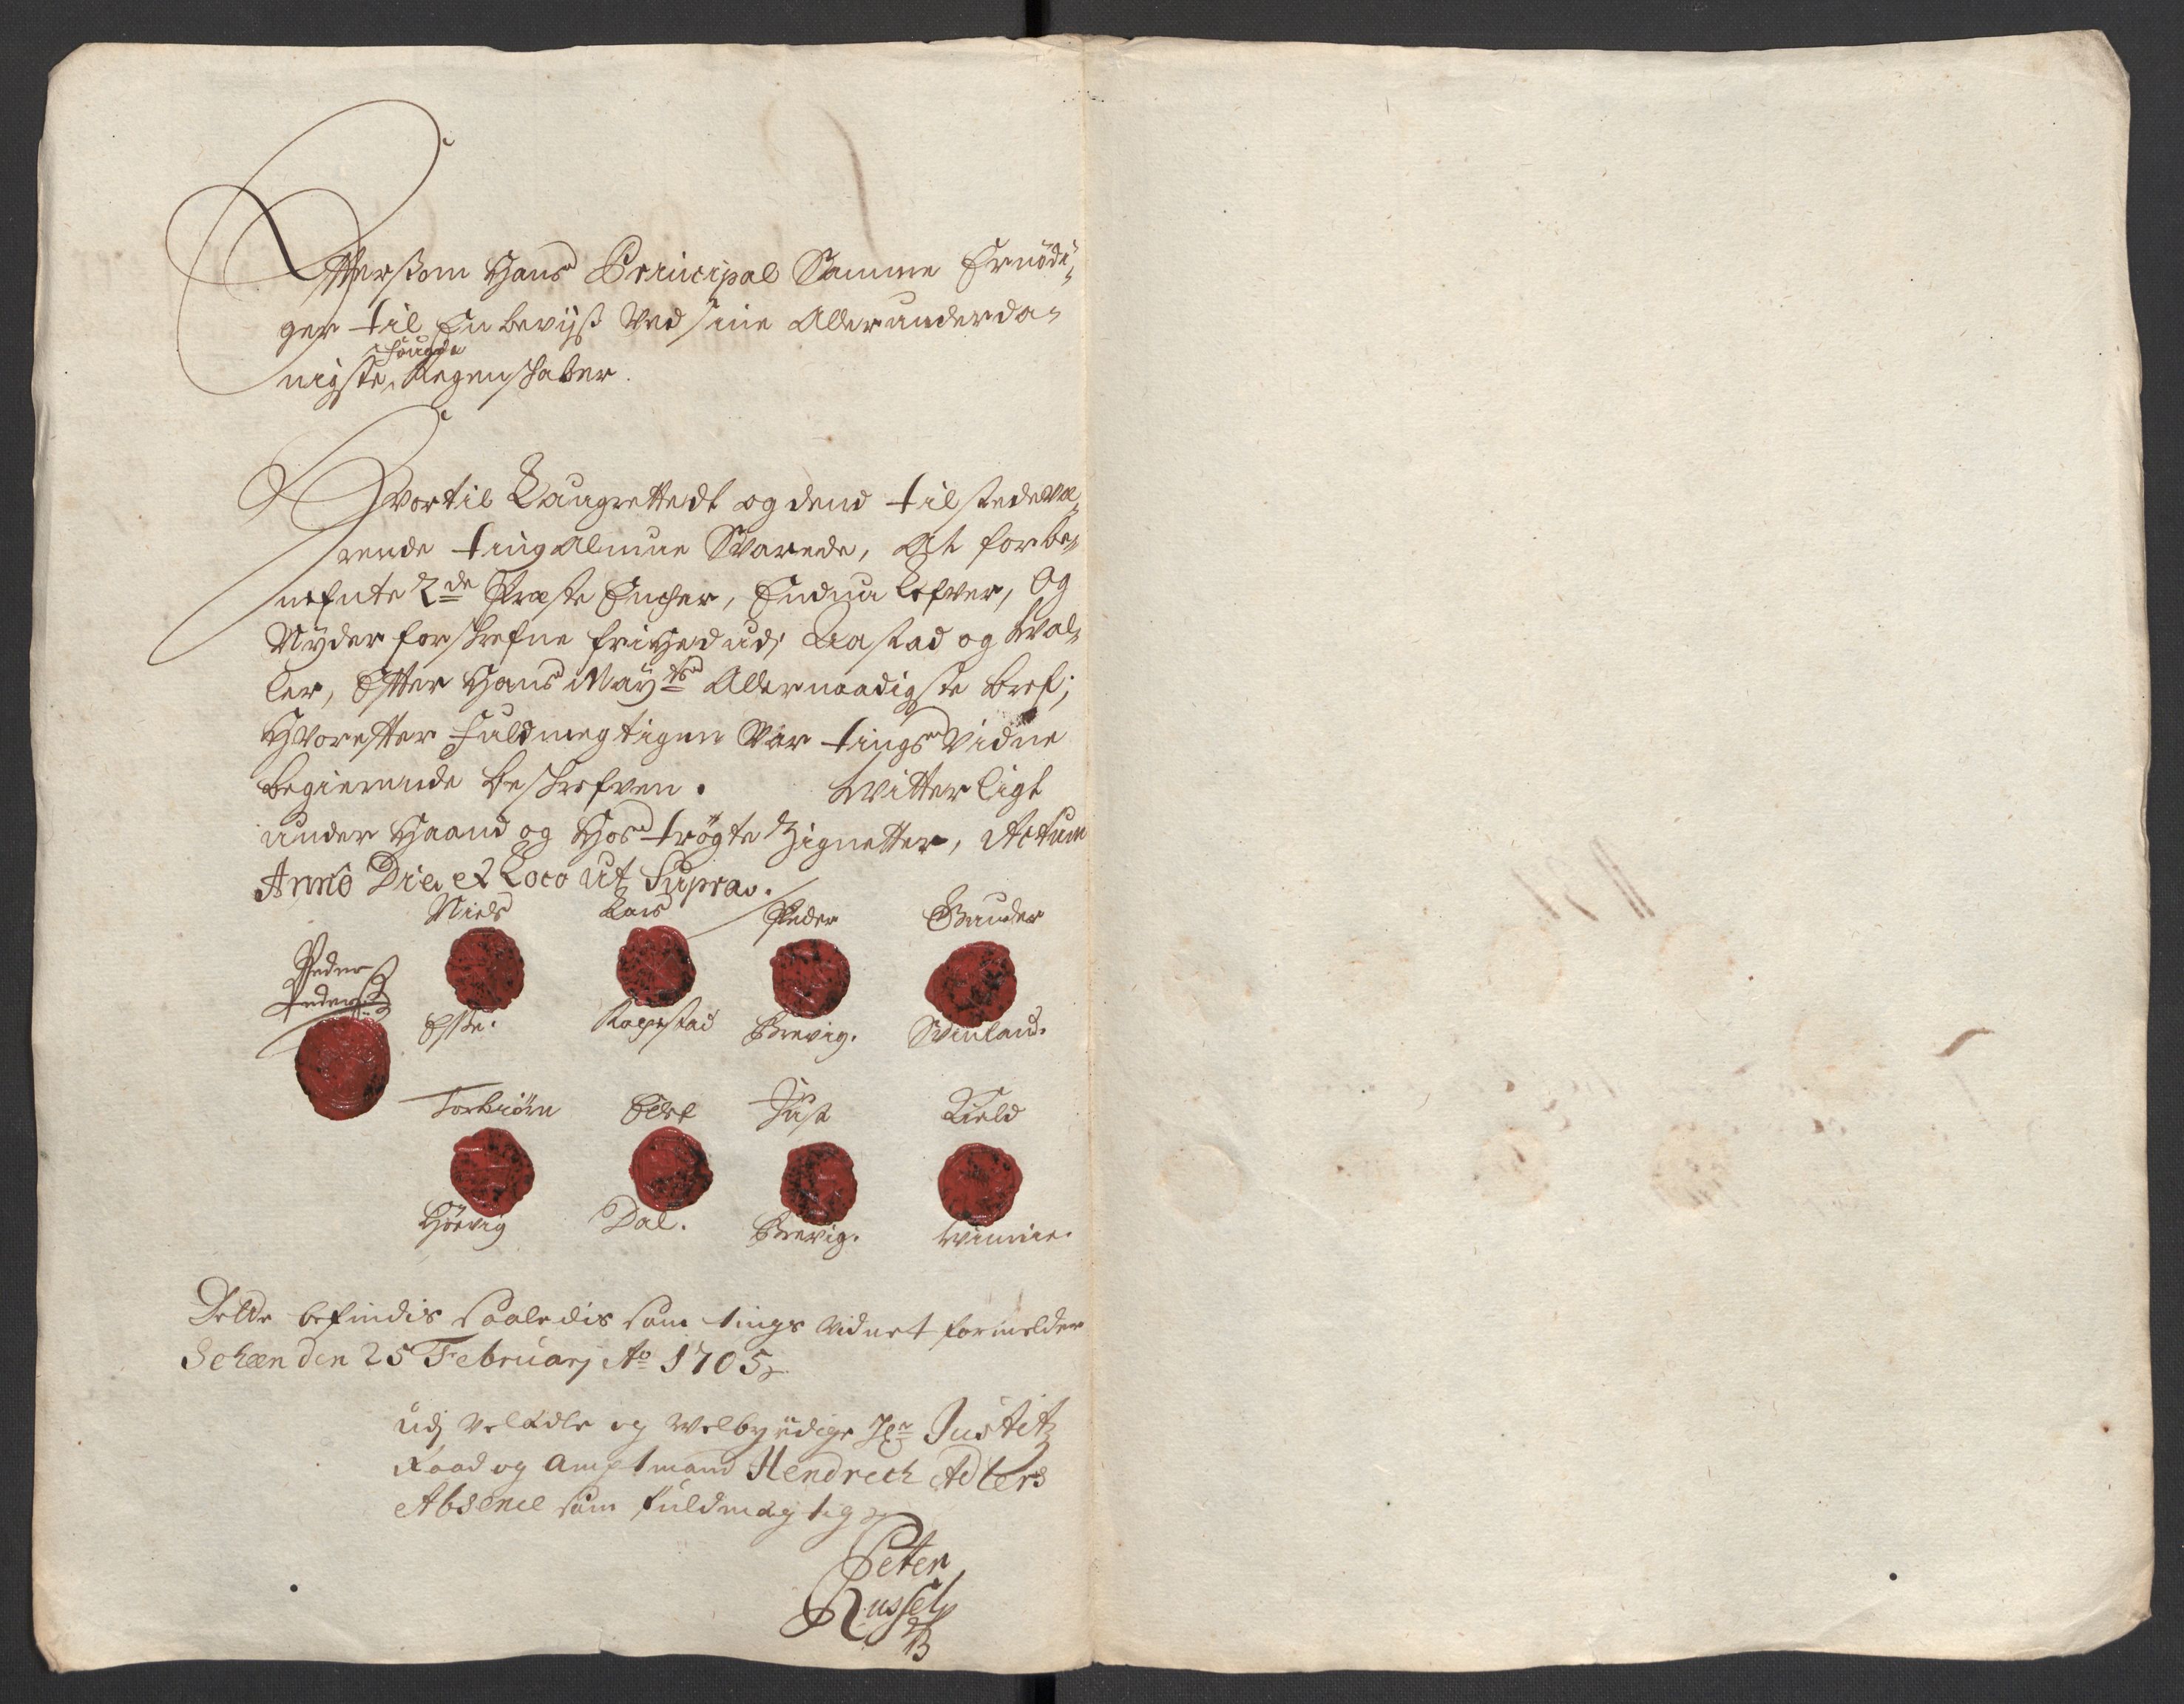 Effterßom Hans Principal Samme Ernödi,,
ger til En beviß Ved sine Allerunderda,,
nigste fougde Regenskaber.
Hvortil Laugrettedt og dend tilstedevæ,,
rende ting Almue Svarede, At forbe,,
nefnte 2de Præste Encher, Endnu Lefver, Og
Nyder forskrefne friheed udj Aastad og Wal,,
ler, Effter Hans Mayts Allernaadigste bref;
Hvoreffter fuldmegtigen Var tings Vidne
begierende beskrefven. Witterligt
under Haand og Hos trögte Zignetter, Actum
Anno Die et Loco ut Supra.
Niels Lars Peder Gunder
Peder
Pederß
Eske. Kopstad Brevig. Svinland.
Torbiörn Just Kield
Dal. Brevig. Winnie.
Dette befindis saaledis som tings Vidnet formelder
Scheen den 25 Februarj Ao 1705
udj Vel Ædle og Welbyrdige Hr Justitz
Raad og Amptmand Hendrich Adlers
Absence som fuldmægtig
Peter
Russel